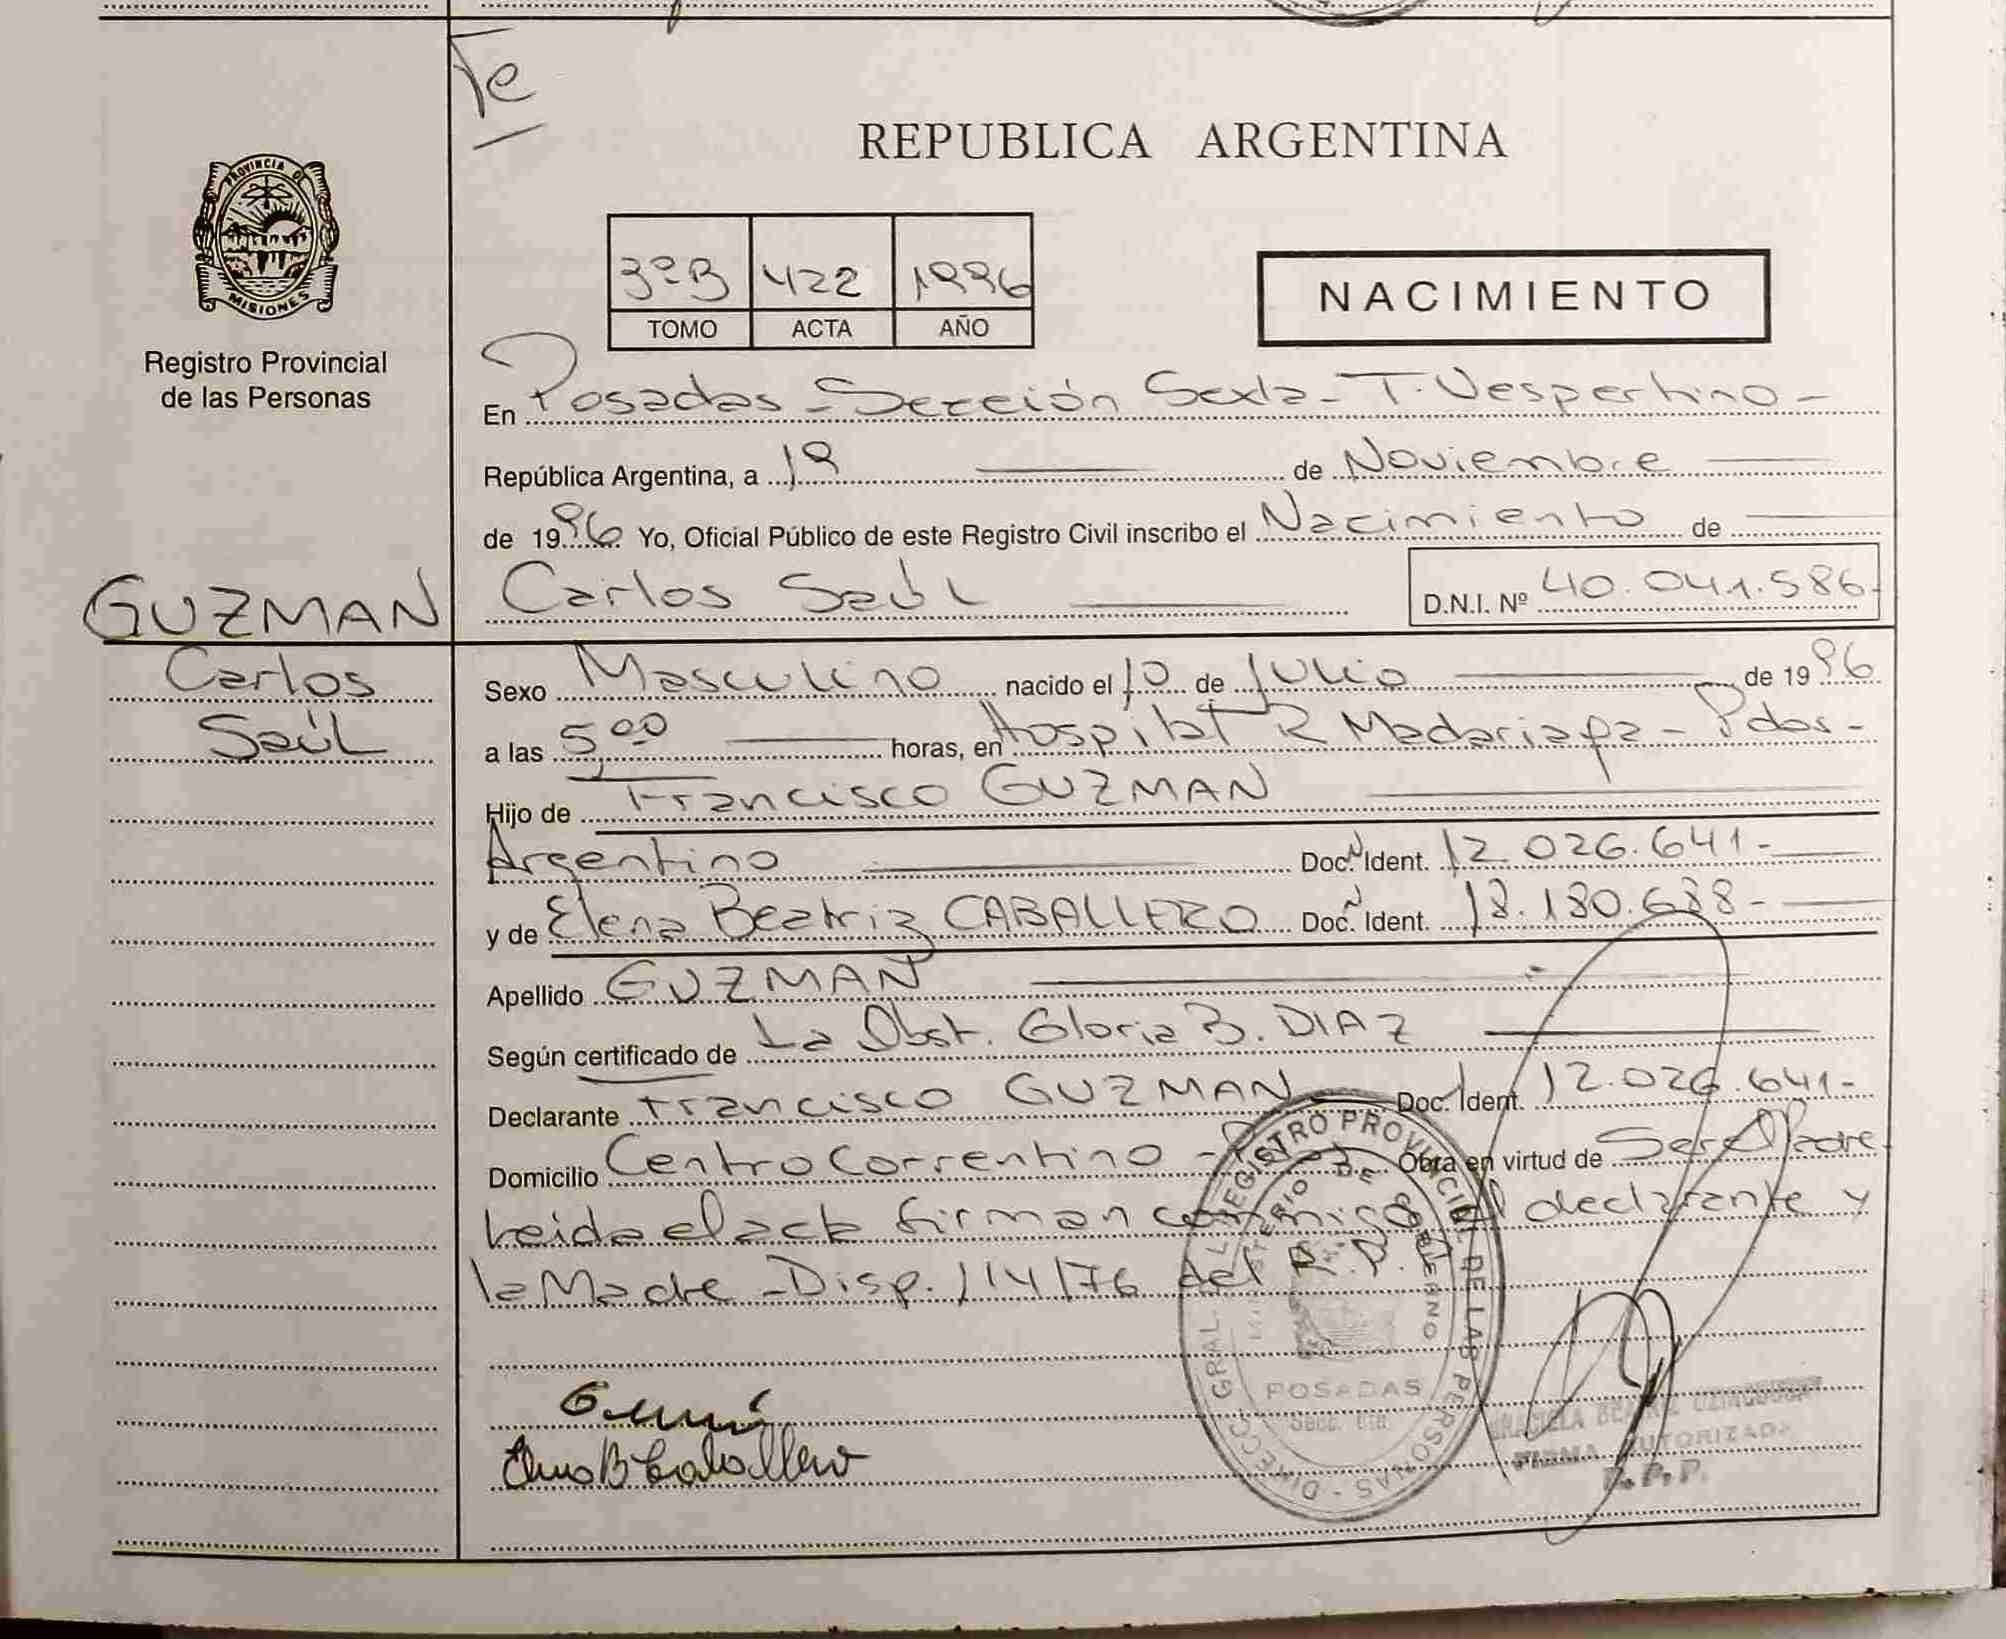 Te
PROVINCIA DE
MISIONES
Registro Provincial
de las Personas
REPUBLICA ARGENTINA
3ºB 422 1996
TOMO ACTA AÑO
NACIMIENTO
En Posadas - Sección Sexta - T. Vespertino -
República Argentina, a 19 de Noviembre
de 1996 Yo, Oficial Público de este Registro Civil inscribo el Nacimiento de
Carlos Saúl D.N.I. Nº 40.041.586-
GUZMAN
Carlos
Saúl
Sexo Masculino nacido el 10 de Julio de 1996
a las 5,00 horas, en Hospital R Madariaga - Pdas -
Hijo de Francisco GUZMAN
Argentino Doc. Ident. 12.026.641-
y de Elena Beatriz CABALLERO Doc. Ident. 18.180.688-
Apellido GUZMAN
Según certificado de La Obst. Gloria B. DIAZ
Declarante Francisco GUZMAN Doc. Ident. 12.026.641-
Domicilio Centro Correntino - Obra en virtud de Ser Padre-
Leida el acta firman conmigo el declarante y
la Madre - Disp. 114/76 del R.P.
DIRECC. GRAL. DEL REGISTRO PROVINCIAL DE LAS PERSONAS -
MINISTERIO DE GOBIERNO
POSADAS
Secc.
Elena B Caballero
GRACIELA BEATRIZ
FIRMA AUTORIZADA
R.P.P.